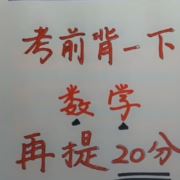 考前背一下
数学
再提20分